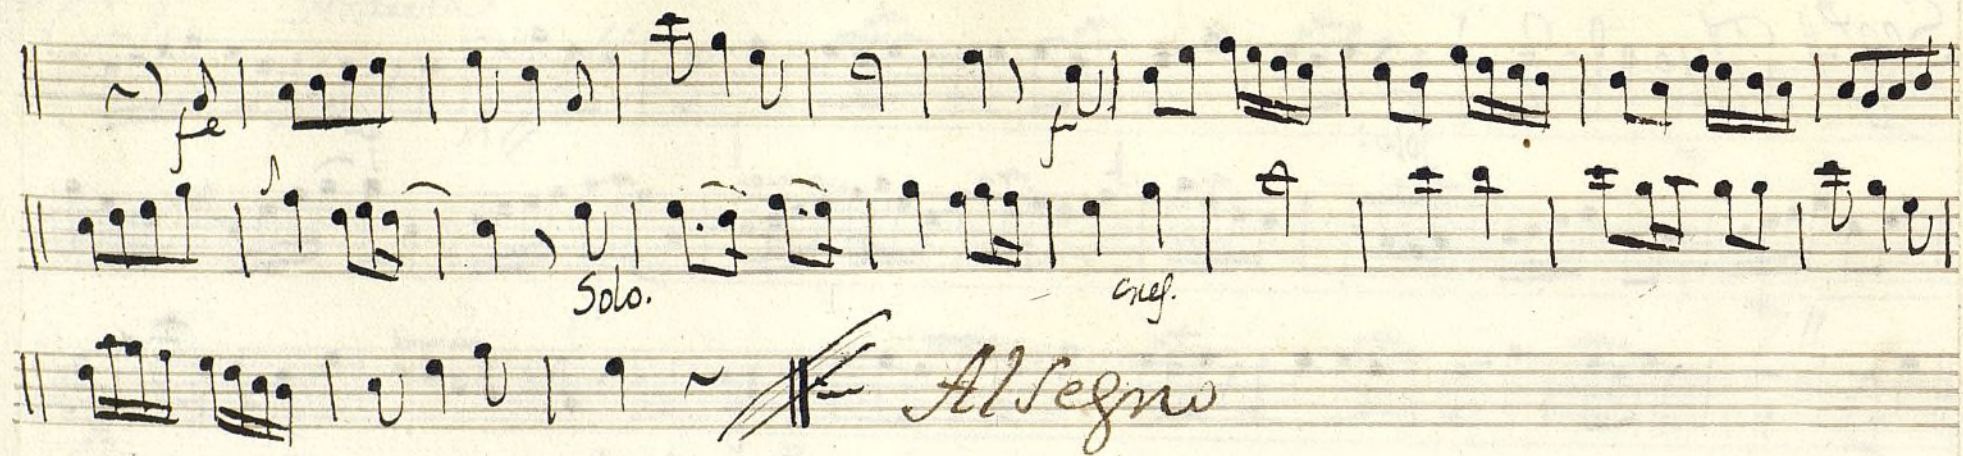 fe f
Solo. cres.
Al Segno